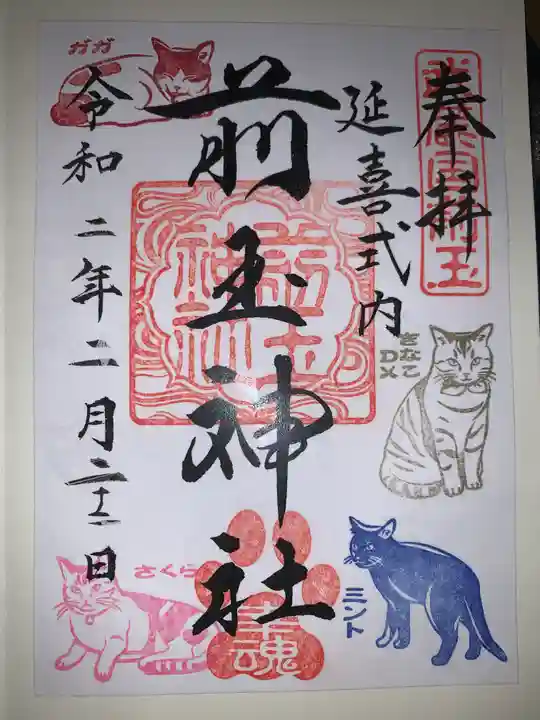 奉拝
延喜式内
前玉神社
令和二年二月二十二日
ガガ
きなこ
DX
ミント
さくら
前玉
神社
幸魂